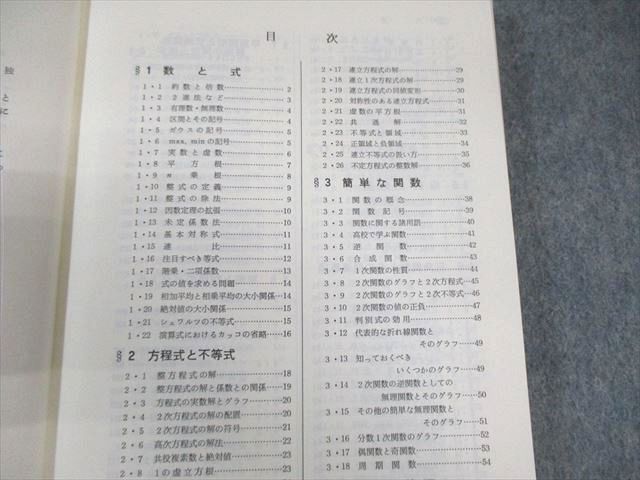 目次
§1 数と式
1・1 約数と倍数 2
1・2 2進法など 3
1・3 有理数・無理数 4
1・4 区間とその記号 4
1・5 ガウスの記号 5
1・6 max, minの記号 6
1・7 実数と虚数 6
1・8 平方根 7
1・9 n乗根 8
1・10 整式の定義 9
1・11 整式の除法 9
1・12 因数定理の拡張 10
1・13 未定係数法 10
1・14 基本対称式 11
1・15 連比 11
1・16 注目すべき等式 12
1・17 階乗・二項係数 13
1・18 式の値を求める問題 14
1・19 相加平均と相乗平均の大小関係 14
1・20 絶対値の大小関係 14
1・21 シュワルツの不等式 15
1・22 演算式におけるカッコの省略 16
§2 方程式と不等式
2・1 整方程式の解 18
2・2 整方程式の解と係数との関係 19
2・3 方程式の実数解とグラフ 20
2・4 2次方程式の解の配置 20
2・5 2次方程式の解の符号 21
2・6 高次方程式の解法 22
2・7 共役複素数と絶対値 23
2・8 1の虚立方根 23
2・17 連立方程式の解 29
2・18 連立1次方程式の解 29
2・19 連立方程式の同値変形 30
2・20 対称性のある連立方程式 31
2・21 虚数の平方根 31
2・22 共通解 32
2・23 不等式と領域 33
2・24 正領域と負領域 34
2・25 連立不等式の扱い方 35
2・26 不定方程式の整数解 36
§3 簡単な関数
3・1 関数の概念 38
3・2 関数記号 39
3・3 関数に関する諸用語 40
3・4 高校で学ぶ関数 41
3・5 逆関数 42
3・6 合成関数 43
3・7 1次関数の性質 44
3・8 2次関数のグラフと2次方程式 45
3・9 2次関数のグラフと2次不等式 46
3・10 2次関数の値の正負 47
3・11 判別式の効用 48
3・12 代表的な折れ線関数と
そのグラフ 49
3・13 知っておくべき
いくつかのグラフ 49
3・14 2次関数の逆関数としての
無理関数とそのグラフ 50
3・15 その他の簡単な無理関数と
そのグラフ 51
3・16 分数1次関数のグラフ 52
3・17 偶関数と奇関数 53
3・18 周期関数 54